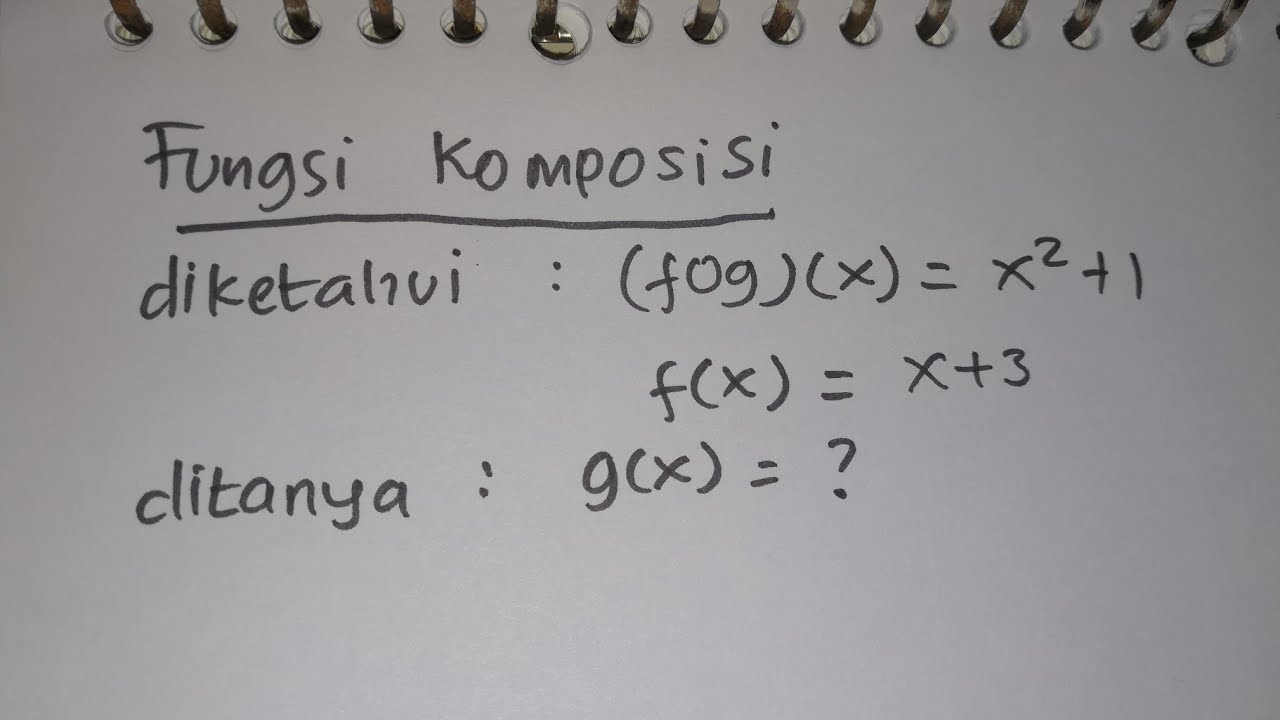 Fungsi Komposisi
diketahui : (fog)(x) = x²+1
f(x) = x+3
ditanya : g(x) = ?